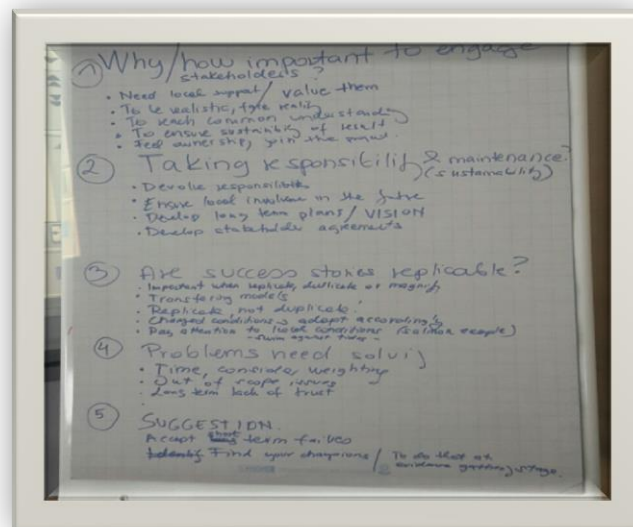 1 Why/how important to engage
stakeholders?
• Need local support/ value them
• To be realistic, face reality
• To reach common understanding
• To ensure sustainability of result
• Feel ownership, join the project.
2 Taking responsibility & maintenance?
(sustainability)
• Devolve responsibilities
• Ensure local involvement in the future
• Develop long term plans/ VISION
• Develop stakeholder agreements
3 Are success stories replicable?
• Important when replicate, duplicate or magnify
• Transfering models
• Replicate, not duplicate!
• Changed conditions → adapt accordingly
• Pay attention to local conditions (salmon example)
4 Problems need solving
• Time, consider, weighting
• Out of scope issues
• Long term lack of trust
5 SUGGESTION.
Accept short term failures
Identify Find your champions / To do that at
evidence gathering stage.